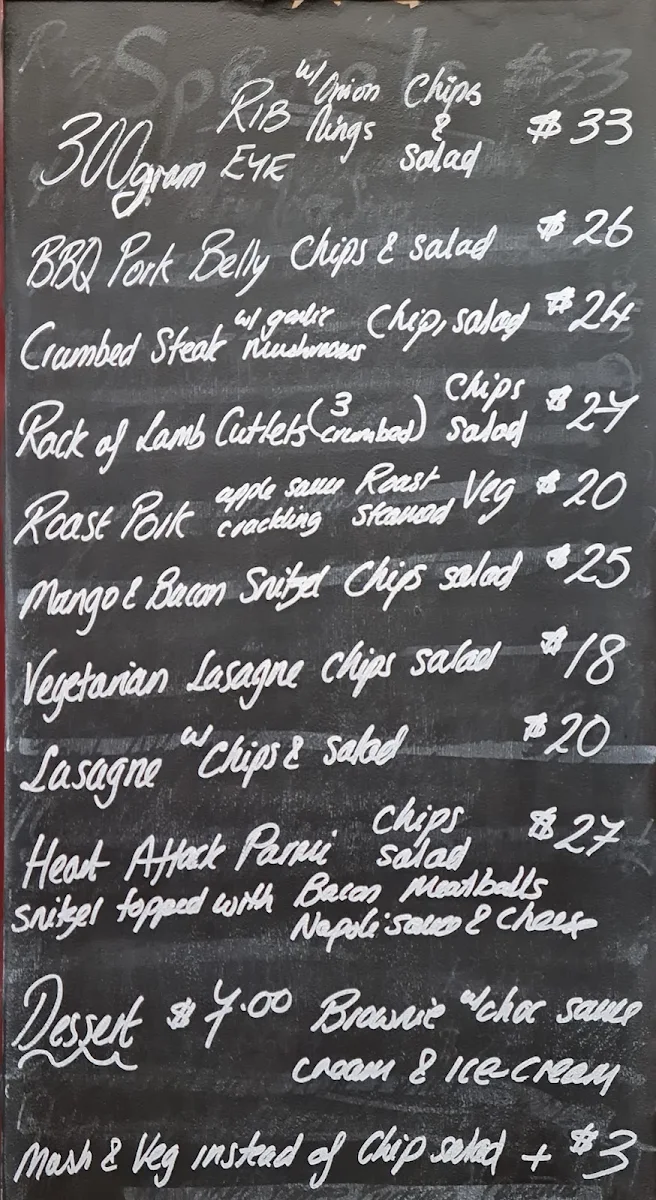 Specials
300gram RIB EYE w/ Onion Rings Chips & Salad $33
BBQ Pork Belly Chips & salad $26
Crumbed Steak w/ garlic mushrooms Chip, salad $24
Rack of Lamb Cutlets (3 crumbed) Chips salad $27
Roast Pork apple sauce crackling Roast steamed Veg $20
Mango & Bacon Snitzel Chips salad $25
Vegetarian Lasagne chips salad $18
Lasagne w/ Chips & salad $20
Heart Attack Parmi chips salad $27
Snitzel topped with Bacon Meatballs
Napoli sauce & Cheese
Dessert $7.00 Brownie w/choc sauce
cream & Ice-cream
Mash & Veg instead of Chip salad + $3